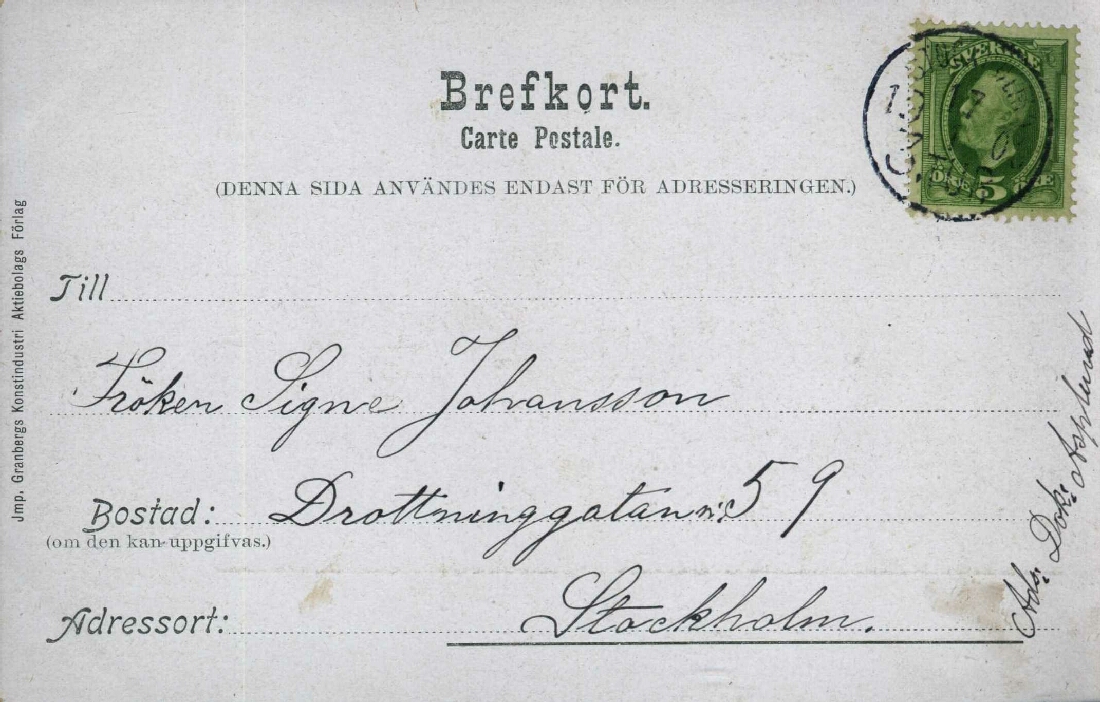 Brefkort.
Carte Postale.
(DENNA SIDA ANVÄNDES ENDAST FÖR ADRESSERINGEN.)
SVERIGE
5
Till
Fröken Signe Johansson
Bostad: Drottninggatan n: 59
(om den kan uppgifvas.)
Adressort: Stockholm.
Adr: Dok: Asplund
Jmp. Granbergs Konstindustri Aktiebolags Förlag